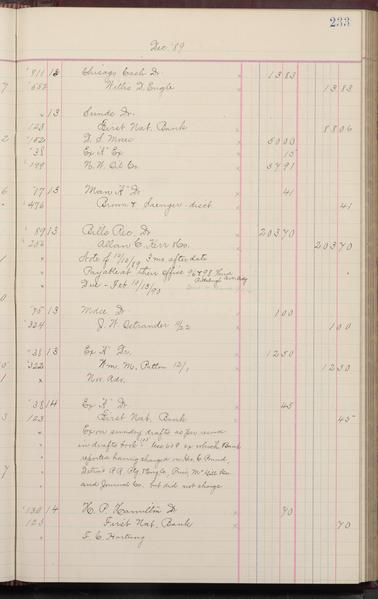 233
Dec. '89
911 13 Chicago Cash Dr. 13 83
552 Willis D. Engle 13 83
13 Sunds Dr.
123 First Nat. Bank 88 06
152 D. S. 50 00
38 Ex "K" Ex 15
149 N. W. Co. 37 91
77 13 Man. "K" Dr 41
476 Brown & Saenger - disct 41
89 13 Bills Rec. Dr 203 70
252 Allan C. Kerr & Co. 203 70
Note of 12/10/89 3 mos. after date
Payable at their office 96 & 98 Third
Pittsburgh
Due - 10/13/90
75 13 Mdse Dr 1 00
324 J. W. Ostrander 1 00
38 13 Ex "K" Dr. 12 50
322 Wm. M. Patton 12/1 12 50
Nov. Adv.
38 14 Ex "K" Dr 45
123 First Nat. Bank 45
Ex on sunday drafts as per memo
in drafts book less ex which Bank
reported having charged on Geo. C.
Detroit and
and Journal Co. but did not charge
130 14 H. P. Hamilton Dr 70
123 First Nat. Bank 70
F. C. Hartung